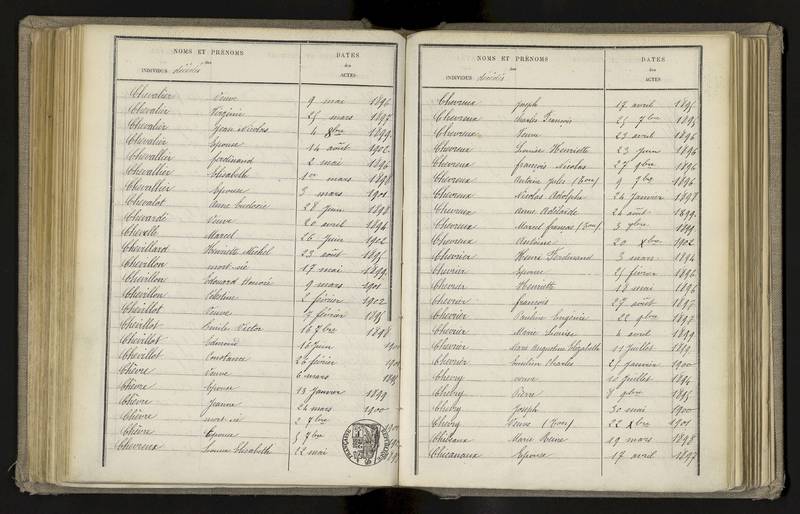 NOMS ET PRÉNOMS
des
INDIVIDUS décédés
DATES
des
ACTES
Chevalier Veuve 9 mai 1896
Chevalier Virginie 25 mars 1897
Chevalier Jean Nicolas 4 Xbre 1899
Chevalier Epouse 14 août 1902
Chevallier Ferdinand 2 mai 1896
Chevallier Elisabeth 1er mars 1898
Chevallier Epouse 3 mars 1901
Chevalot Anne 28 Juin 1898
Chevardé Veuve 20 avril 1894
Chevelle Marcel 26 Juin 1902
Chevillard Henriette Michel 23 août 1895
Chevillon mort-né 17 mai 1899
Chevillon Edouard Honoré 9 mars 1901
Chevillon 2 février 1902
Chevillot Veuve 17 février 1895
Chevillot Emile Victor 16 7bre 1898
Chevillot Edmond 16 Juin
Chevillot Constance 26 février
Chèvre Veuve 6 mars
Chèvre Epouse 13 Janvier 1899
Chèvre Jeanne 24 mars 1900
Chèvre mort-né 2 7bre
Chèvre Epouse 5 7bre
Chevreux Louise Elisabeth 22 mai
NOMS ET PRÉNOMS
des
INDIVIDUS décédés
DATES
des
ACTES
Chevreux Joseph 17 avril 1895
Chevreux Charles François 25 7bre 1895
Chevreux Veuve 23 avril 1896
Chevreux Louise Henriette 23 Juin 1896
Chevreux françois Nicolas 27 9bre 1896
Chevreux Antoine Jules 9 7bre 1896
Chevreux Nicolas Adolphe 24 Janvier 1898
Chevreux Anne Adélaïde 24 août 1899
Chevreux Marcel françois 3 7bre 1899
Chevreux Antoine 20 Xbre 1902
Chevrier Henri Ferdinand 3 mars 1894
Chevrier Epouse 25 février 1896
Chevrier Henriette 18 mai 1896
Chevrier françois 27 août 1897
Chevrier Pauline Eugénie 22 9bre 1897
Chevrier Marie Louise 4 avril 1899
Chevrier Marie Augustine Elizabeth 11 Juillet 1899
Chevrier Emilien Charles 25 Janvier 1900
Chevry veuve 10 Juillet 1894
Chevry Pierre 8 9bre 1895
Chevry Joseph 30 mai 1900
Chevry Veuve 22 Xbre 1901
Marie Reine 19 mars 1898
Epouse 17 avril 1897